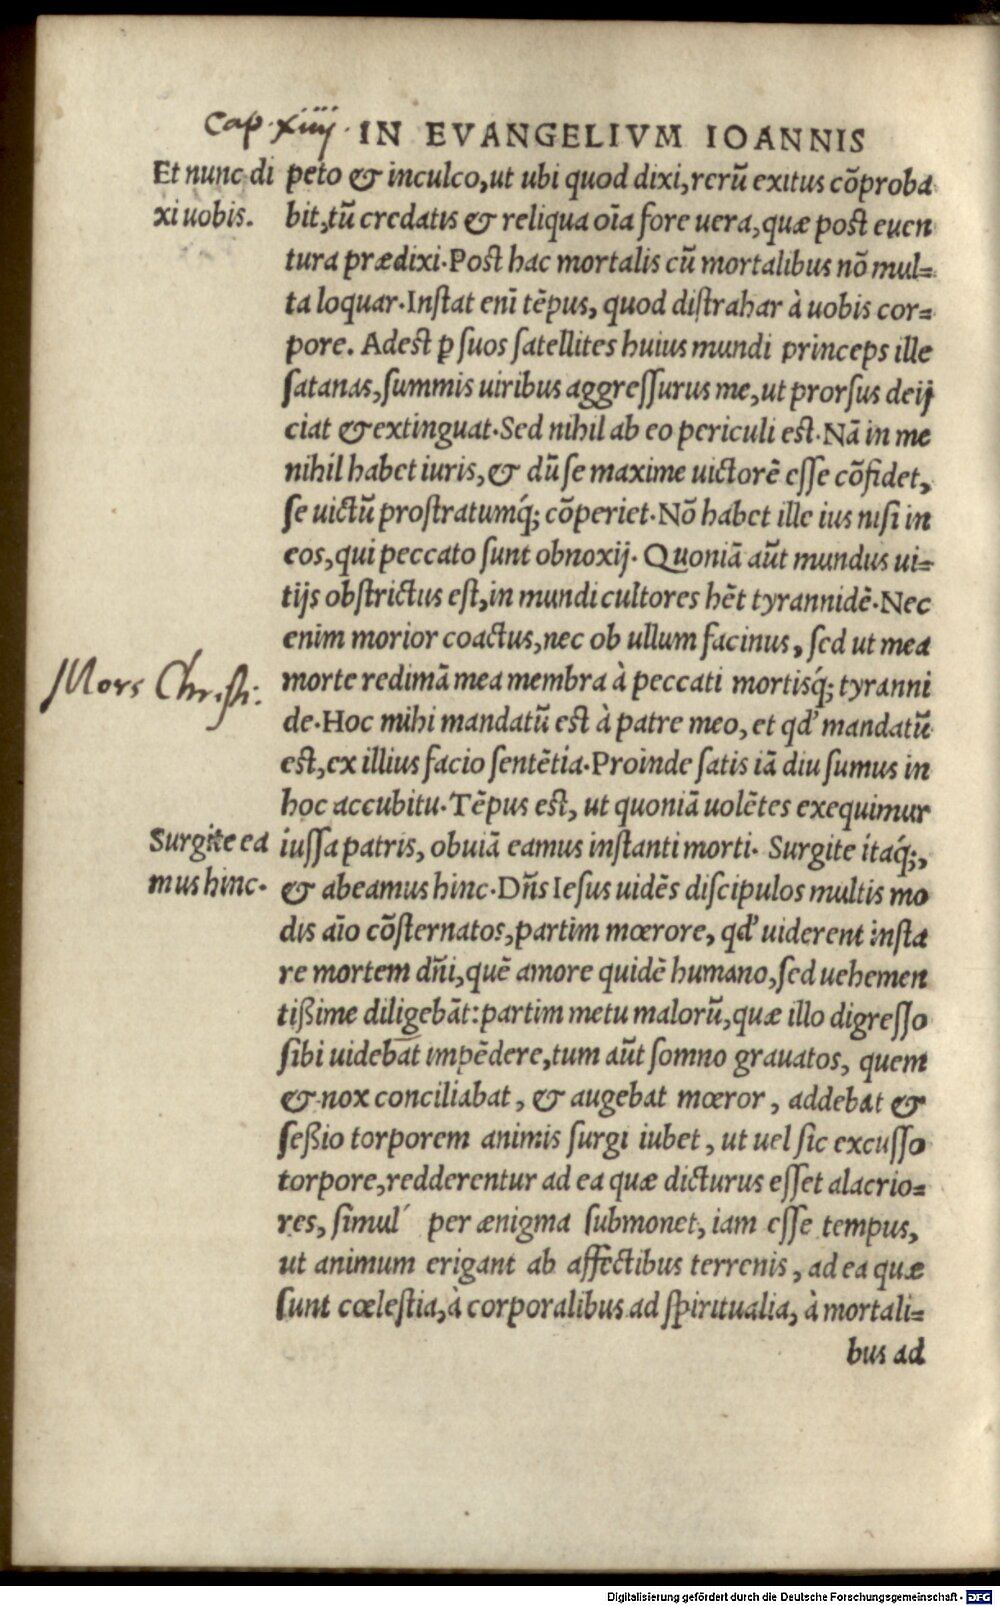 Cap. xiiij. IN EVANGELIVM IOANNIS
Et nunc di
xi uobis.
peto & inculco, ut ubi quod dixi, rerū exitus cōproba
bit, tū credatis & reliqua oīa fore uera, quæ post euen
tura prædixi. Post hac mortalis cū mortalibus nō mul=
ta loquar. Instat enī tēpus, quod distrahar à uobis cor=
pore. Adest ꝑ suos satellites huius mundi princeps ille
satanas, summis uiribus aggressurus me, ut prorsus deij
ciat & extinguat. Sed nihil ab eo periculi est. Nā in me
nihil habet iuris, & dū se maxime uictorē esse cōfidet,
se uictū prostratumq́; cōperiet. Nō habet ille ius nisi in
eos, qui peccato sunt obnoxij. Quoniā aūt mundus ui=
tijs obstrictus est, in mundi cultores hēt tyrannidē. Nec
enim morior coactus, nec ob ullum facinus, sed ut mea
morte redimā mea membra à peccati mortisq́; tyranni
Mors Christi:
de. Hoc mihi mandatū est à patre meo, et qd' mandatū
est, ex illius facio sentētia. Proinde satis iā diu sumus in
hoc accubitu. Tēpus est, ut quoniā uolētes exequimur
Surgite ea
mus hinc.
iussa patris, obuiā eamus instanti morti. Surgite itaq́;,
& abeamus hinc. Dn̄s Iesus uidēs discipulos multis mo
dis aīo cōsternatos, partim mœrore, qd' uiderent insta
re mortem dn̄i, quē amore quidē humano, sed uehemen
tißime diligebāt: partim metu malorū, quæ illo digresso
sibi uidebāt impēdere, tum aūt somno grauatos, quem
& nox conciliabat, & augebat mœror, addebat &
seßio torporem animis surgi iubet, ut uel sic excusso
torpore, redderentur ad ea quæ dicturus esset alacrio=
res, simul per ænigma submonet, iam esse tempus,
ut animum erigant ab affectibus terrenis, ad ea quæ
sunt cœlestia, à corporalibus ad spiritualia, à mortali=
bus ad
Digitalisierung gefördert durch die Deutsche Forschungsgemeinschaft - DFG